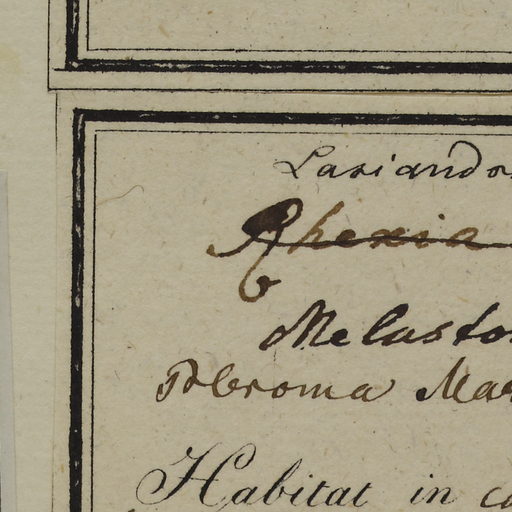 Lasiandr
Rhexia
Melasto
Pleroma Mar
Habitat in c